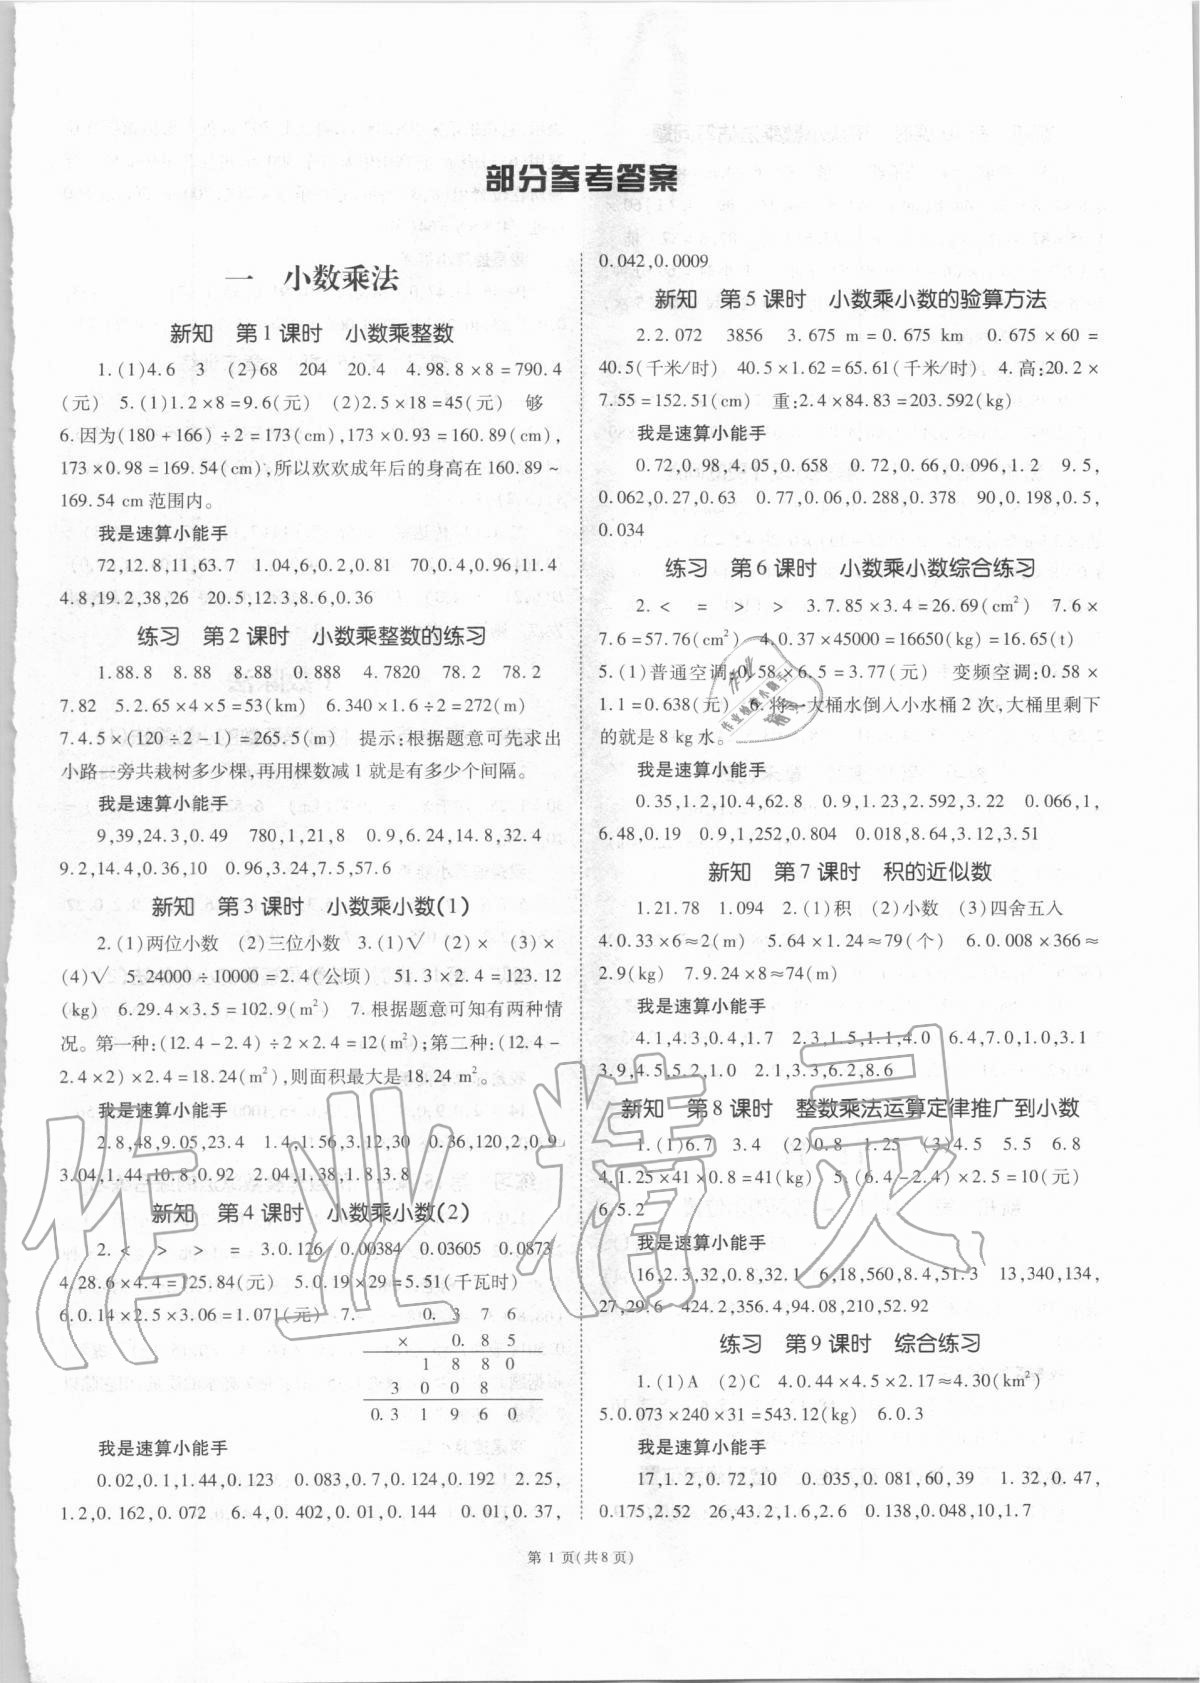 部分参考答案
一　小数乘法
新知　第1课时　小数乘整数
1.(1)4.6　3　(2)68　204　20.4　4.98.8×8=790.4
(元)　5.(1)1.2×8=9.6(元)　(2)2.5×18=45(元)　够
6.因为(180+166)÷2=173(cm),173×0.93=160.89(cm),
173×0.98=169.54(cm),所以欢欢成年后的身高在160.89~
169.54 cm范围内。
我是速算小能手
72,12.8,11,63.7　1.04,6,0.2,0.81　70,0.4,0.96,11.4
4.8,19.2,38,26　20.5,12.3,8.6,0.36
练习　第2课时　小数乘整数的练习
1.88.8　8.88　8.88　0.888　4.7820　78.2　78.2
7.82　5.2.65×4×5=53(km)　6.340×1.6÷2=272(m)
7.4.5×(120÷2-1)=265.5(m)　提示:根据题意可先求出
小路一旁共栽树多少棵,再用棵数减1就是有多少个间隔。
我是速算小能手
9,39,24.3,0.49　780,1,21,8　0.9,6.24,14.8,32.4
9.2,14.4,0.36,10　0.96,3.24,7.5,57.6
新知　第3课时　小数乘小数(1)
2.(1)两位小数　(2)三位小数　3.(1)√　(2)×　(3)×
(4)√　5.24000÷10000=2.4(公顷)　51.3×2.4=123.12
(kg)　6.29.4×3.5=102.9(m²)　7.根据题意可知有两种情
况。第一种:(12.4-2.4)÷2×2.4=12(m²);第二种:(12.4-
2.4×2)×2.4=18.24(m²),则面积最大是18.24 m²。
我是速算小能手
2.8,48,9.05,23.4　1.4,1.56,3.12,30　0.36,120,2,0.9
3.04,1.44,10.8,0.92　2.04,1.38,1.8,3.8
新知　第4课时　小数乘小数(2)
2.<　>　>　=　3.0.126　0.00384　0.03605　0.0873
4.28.6×4.4=125.84(元)　5.0.19×29=5.51(千瓦时)
6.0.14×2.5×3.06=1.071(元)　7.　0.3 7 6
×　0.8 5
1 8 8 0
3 0 0 8
0.3 1 9 6 0
我是速算小能手
0.02,0.1,1.44,0.123　0.083,0.7,0.124,0.192　2.25,
1.2,0.162,0.072　6.4,0.402,0.01,0.12　0.01,0.37,
0.042,0.0009
新知　第5课时　小数乘小数的验算方法
2.2.072　3856　3.675 m=0.675 km　0.675×60=
40.5(千米/时)　40.5×1.62=65.61(千米/时)　4.高:20.2×
7.55=152.51(cm)　重:2.4×84.83=203.592(kg)
我是速算小能手
0.72,0.98,4.05,0.658　0.72,0.66,0.096,1.2　9.5,
0.062,0.27,0.63　0.77,0.06,0.288,0.378　90,0.198,0.5,
0.034
练习　第6课时　小数乘小数综合练习
2.<　=　>　>　3.7.85×3.4=26.69(cm²)　7.6×
7.6=57.76(cm²)　4.0.37×45000=16650(kg)=16.65(t)
5.(1)普通空调:0.58×6.5=3.77(元)　变频空调:0.58×
1.1=0.638(元)　6.将一大桶水倒入小水桶2次,大桶里剩下
的就是8 kg水。
我是速算小能手
0.35,1.2,10.4,62.8　0.9,1.23,2.592,3.22　0.066,1,
6.48,0.19　0.9,1,252,0.804　0.018,8.64,3.12,3.51
新知　第7课时　积的近似数
1.21.78　1.094　2.(1)积　(2)小数　(3)四舍五入
4.0.33×6≈2(m)　5.64×1.24≈79(个)　6.0.008×366≈
2.9(kg)　7.9.24×8≈74(m)
我是速算小能手
4.1,4.3,0.4,1.7　2.3,1.5,1.1,4.0　6.4,7.0,1.0,3.1
3.9,4.5,5.2,1.0　2.1,3.3,6.2,8.6
新知　第8课时　整数乘法运算定律推广到小数
1.(1)6.7　3.4　(2)0.8　1.25　(3)4.5　5.5　6.8
4.1.25×41×0.8=41(kg)　5.(6.4-2.4)×2.5=10(元)
6.5.2
我是速算小能手
16,2.3,32,0.8,32.1　6,18,560,8.4,51.3　13,340,134,
27,29.6　424.2,356.4,94.08,210,52.92
练习　第9课时　综合练习
1.(1)A　(2)C　4.0.44×4.5×2.17≈4.30(km²)
5.0.073×240×31=543.12(kg)　6.0.3
我是速算小能手
17,1.2,0.72,10　0.035,0.081,60,39　1.32,0.47,
0.175,2.52　26,43.2,1.6,2.6　0.138,0.048,10,1.7
第1页(共8页)
作业精灵